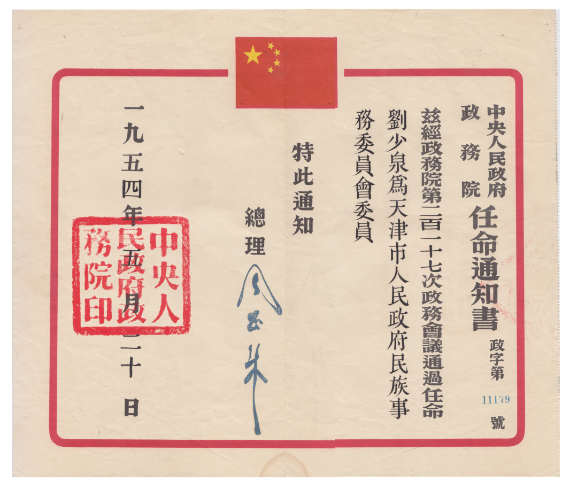 中央人民政府
政務院
任命通知書
政字第
11179
號
茲經政務院第二百一十七次政務會議通過任命
劉少泉爲天津市人民政府民族事
務委員會委員
特此通知
總理
周恩來
一九五四年五月二十日
中央人
民政府政
務院印